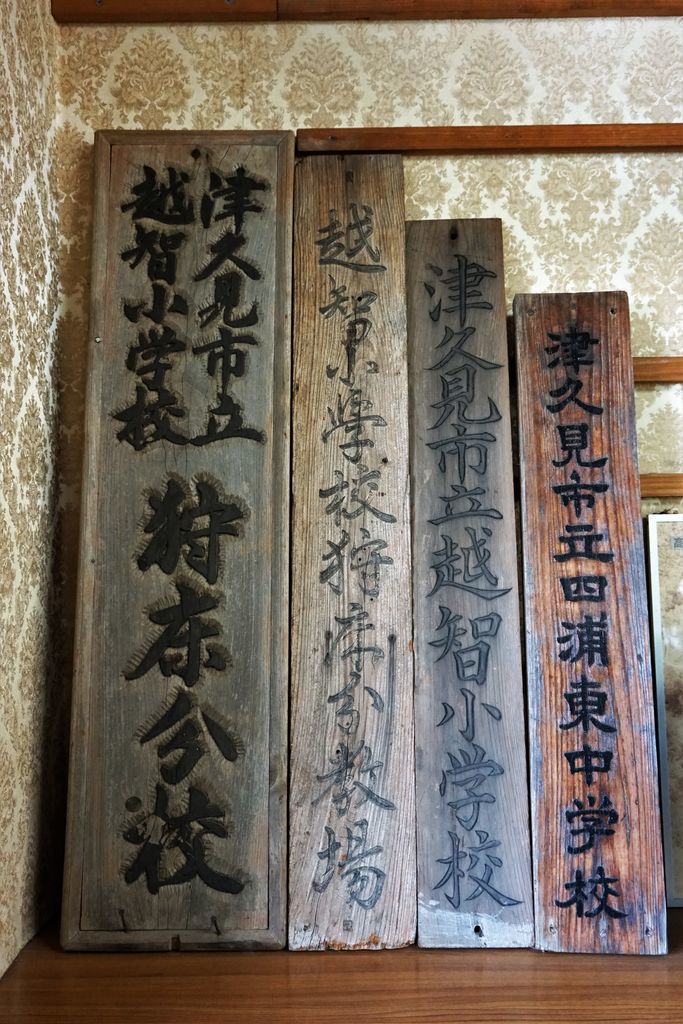 津久見市立
越智小学校
狩床分校
越智小學校狩床分教場
津久見市立越智小学校
津久見市立四浦東中学校